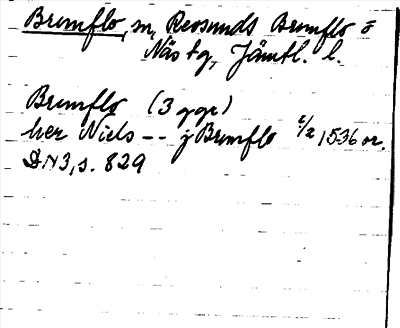 Brunflo, sn, Revsunds Brunflo o
Näs tg, Jämtl. l.
Brunflo (3 ggr)
her Niels -- j Brunflo 1/2 1536 or.
DN 3, s. 829